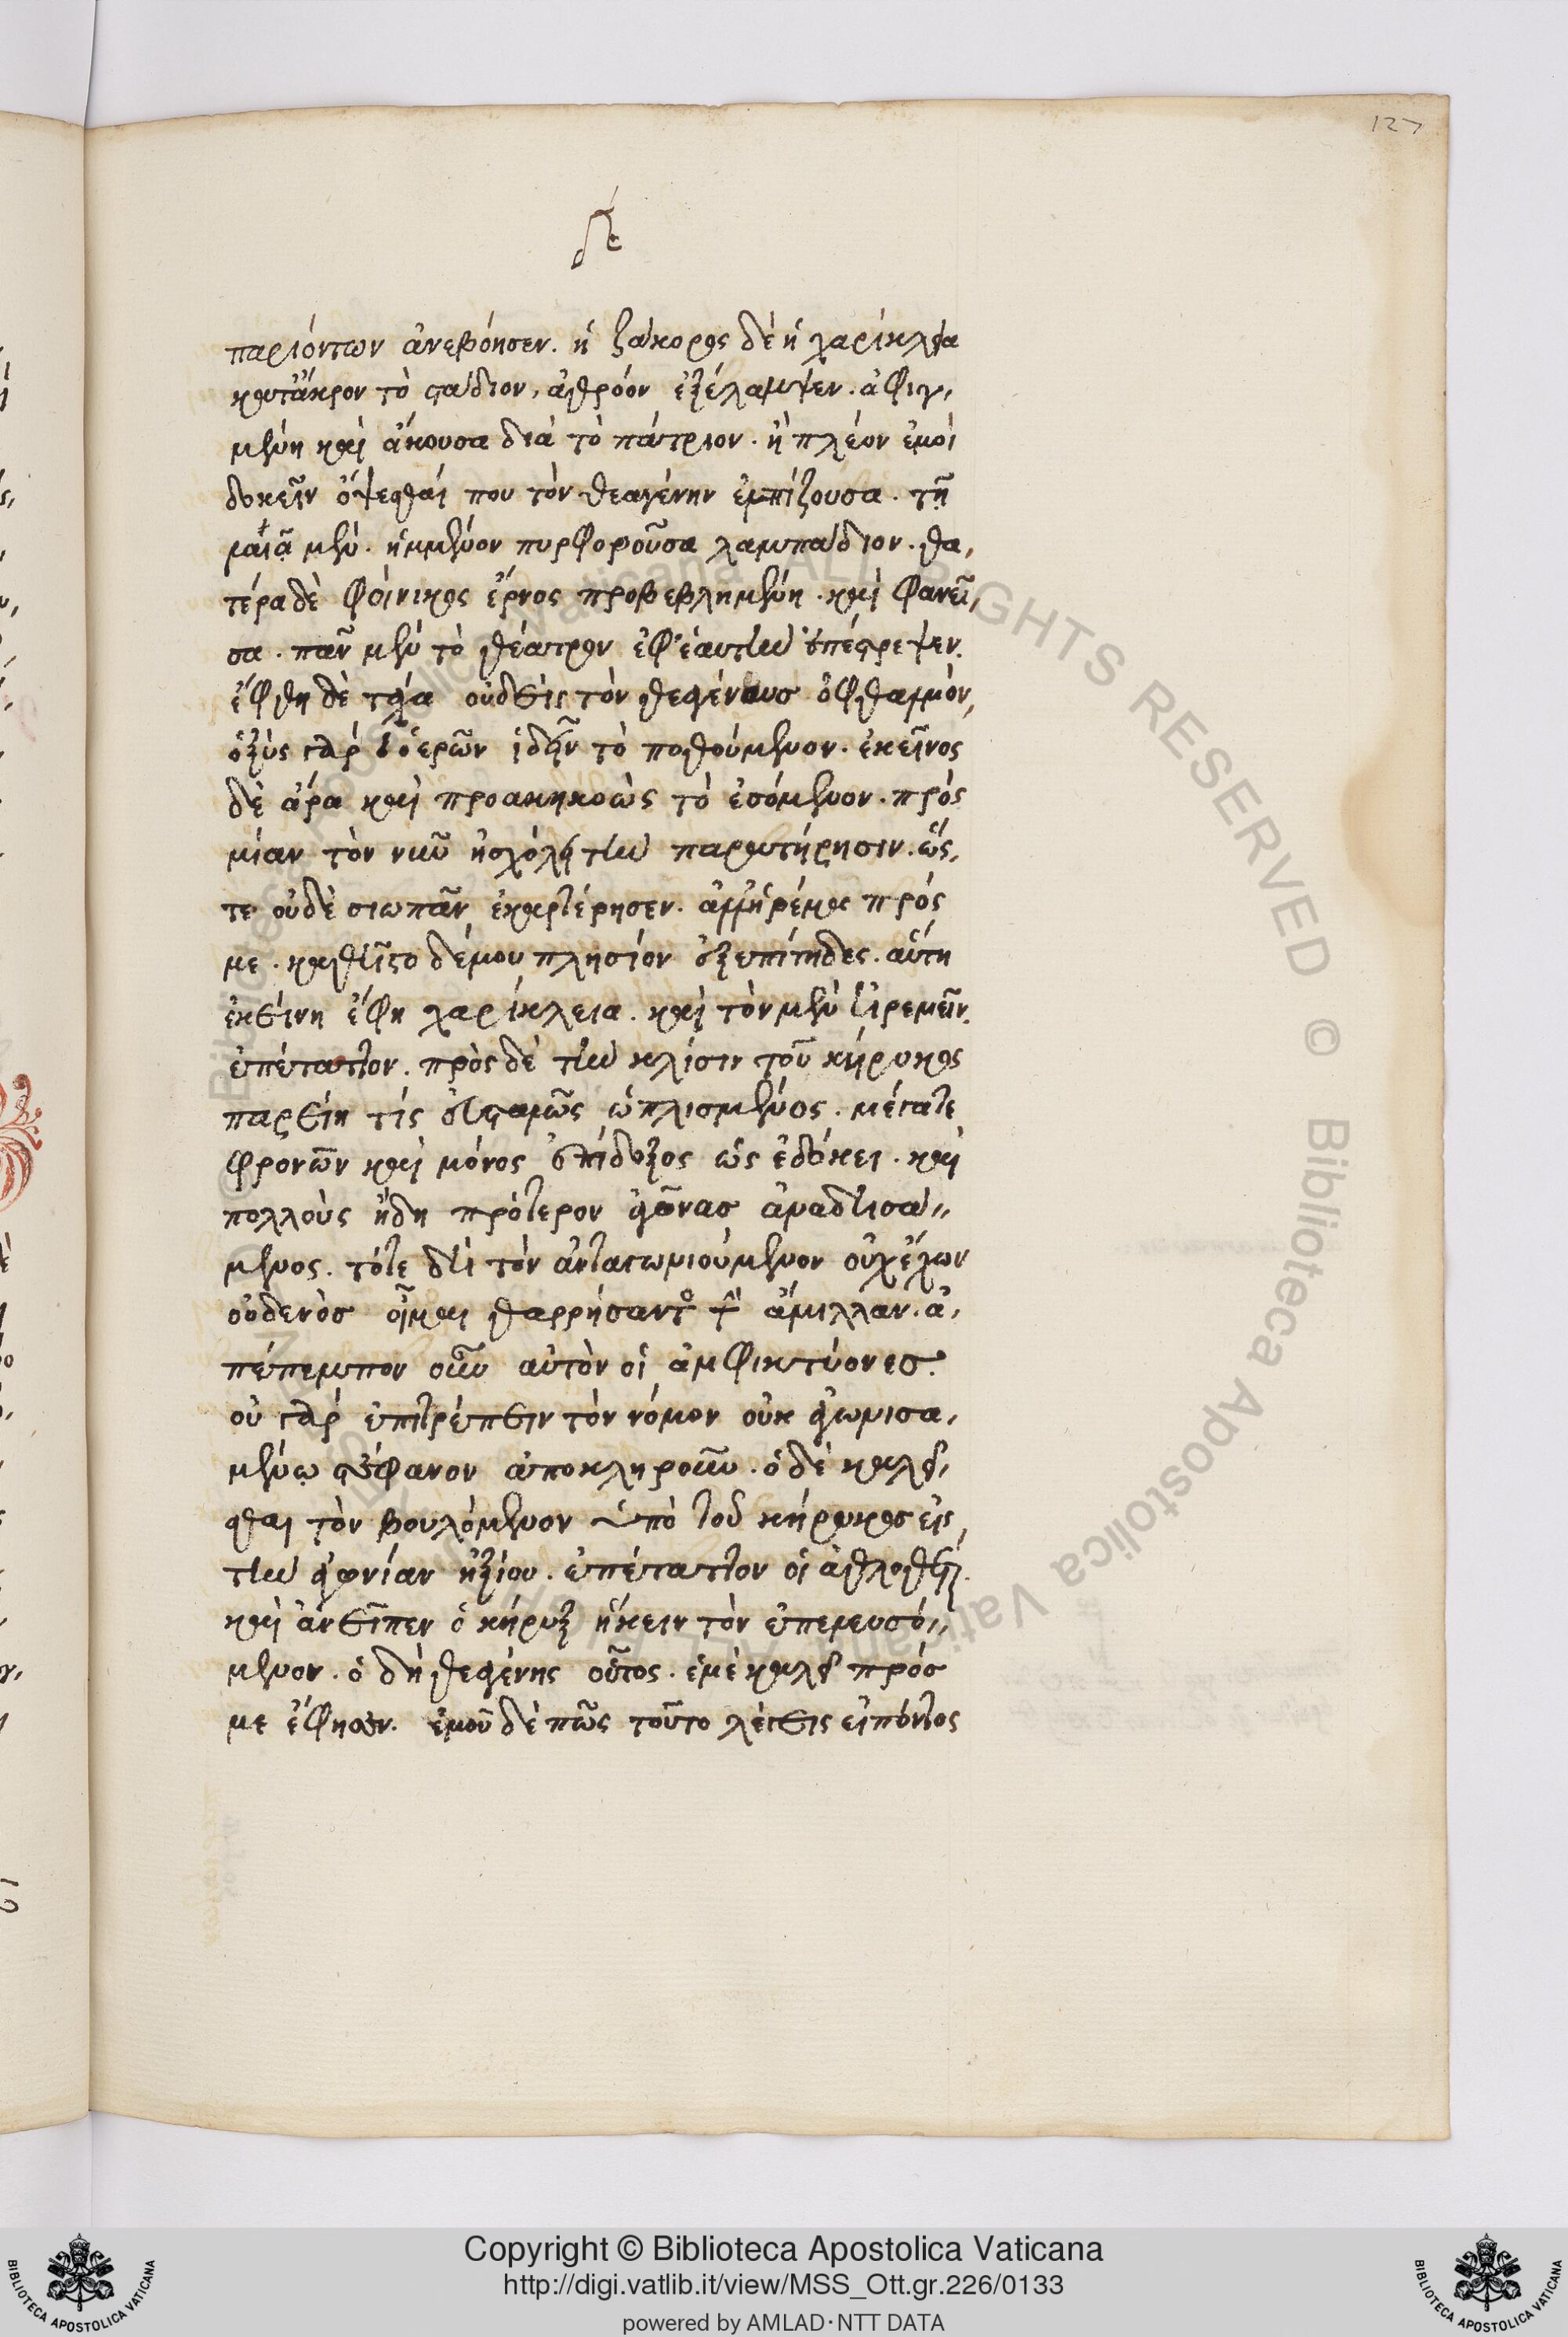 127
παριόντων ἀνεβόησεν. ἡ ζάκορος δὲ ἡ χαρίκλεια
κατάκρον τὸ στάδιον, ἀθρόον ἐξέλαμψεν. ἀφιγ,
μένη καὶ ἄκουσα διὰ τὸ πάτριον. ἢ πλέον ἐμοὶ
δοκεῖν ὄψεσθαί που τὸν θεαγένην ἐλπίζουσα. τῇ
λαιᾷ μὲν. ἡμμένον πυρφοροῦσα λαμπάδιον. θα,
τέρα δὲ φοίνικος ἔρνος προβεβλημένη. καὶ φανεῖ,
σα. πᾶν μὲν τὸ θέατρον ἐφ' ἑαυτὴν ἐπέστρεψεν.
ἔφθη δὲ τάχα οὐδεὶς τὸν θεαγένους ὀφθαλμόν,
ὀξὺς γὰρ ὁ ἐρῶν ἰδεῖν τὸ ποθούμενον. ἐκεῖνος
δὲ ἄρα καὶ προακηκοὼς τὸ ἐσόμενον. πρὸς
μίαν τὸν νοῦν ἠσχόλει τὴν παρατήρησιν. ὥς,
τε οὐδὲ σιωπᾶν ἐκαρτέρησεν. ἀλλ' ἠρέμα πρός
με. καθῆστο δέ μου πλησίον ἐξεπίτηδες. αὕτη
ἐκείνη ἔφη χαρίκλεια. καὶ τὸν μὲν ἠρεμεῖν
ἐπέταττον. πρὸς δὲ τὴν κλίσιν τοῦ κήρυκος
παρείη τίς εὐσταμῶς ὡπλισμένος. μέγα τε
φρονῶν καὶ μόνος ἐπίδοξος ὡς ἐδόκει. καὶ
πολλοὺς ἤδη πρότερον ἀγῶνας ἀναδησά,,
μενος. τότε δὲ τὸν ἀνταγωνιούμενον οὐχ' ἔχων
οὐδενὸς οἶμαι θαρρήσαντος τὴν ἅμιλλαν. ἀ,
πέπεμπον οὖν αὐτὸν οἱ ἀμφικτύονες.
οὐ γὰρ ἐπιτρέπειν τὸν νόμον οὐκ ἀγωνισα,
μένῳ στέφανον ἀποκληροῦν. ὁ δὲ καλεῖ,
σθαι τὸν βουλόμενον ὑπὸ τοῦ κήρυκος εἰς
τὴν ἀγωνίαν ἠξίου. ἐπέταττον οἱ ἀθλοθέται.
καὶ ἀνεῖπεν ὁ κήρυξ ἥκειν τὸν ἐπελευσό,,
μενον. ὁ δὴ θεαγένης οὗτος. ἐμὲ καλεῖ πρός
με ἔφησεν. ἐμοῦ δὲ πῶς τοῦτο λέγεις εἰπόντος
Copyright © Biblioteca Apostolica Vaticana
http://digi.vatlib.it/view/MSS_Ott.gr.226/0133
powered by AMLAD·NTT DATA